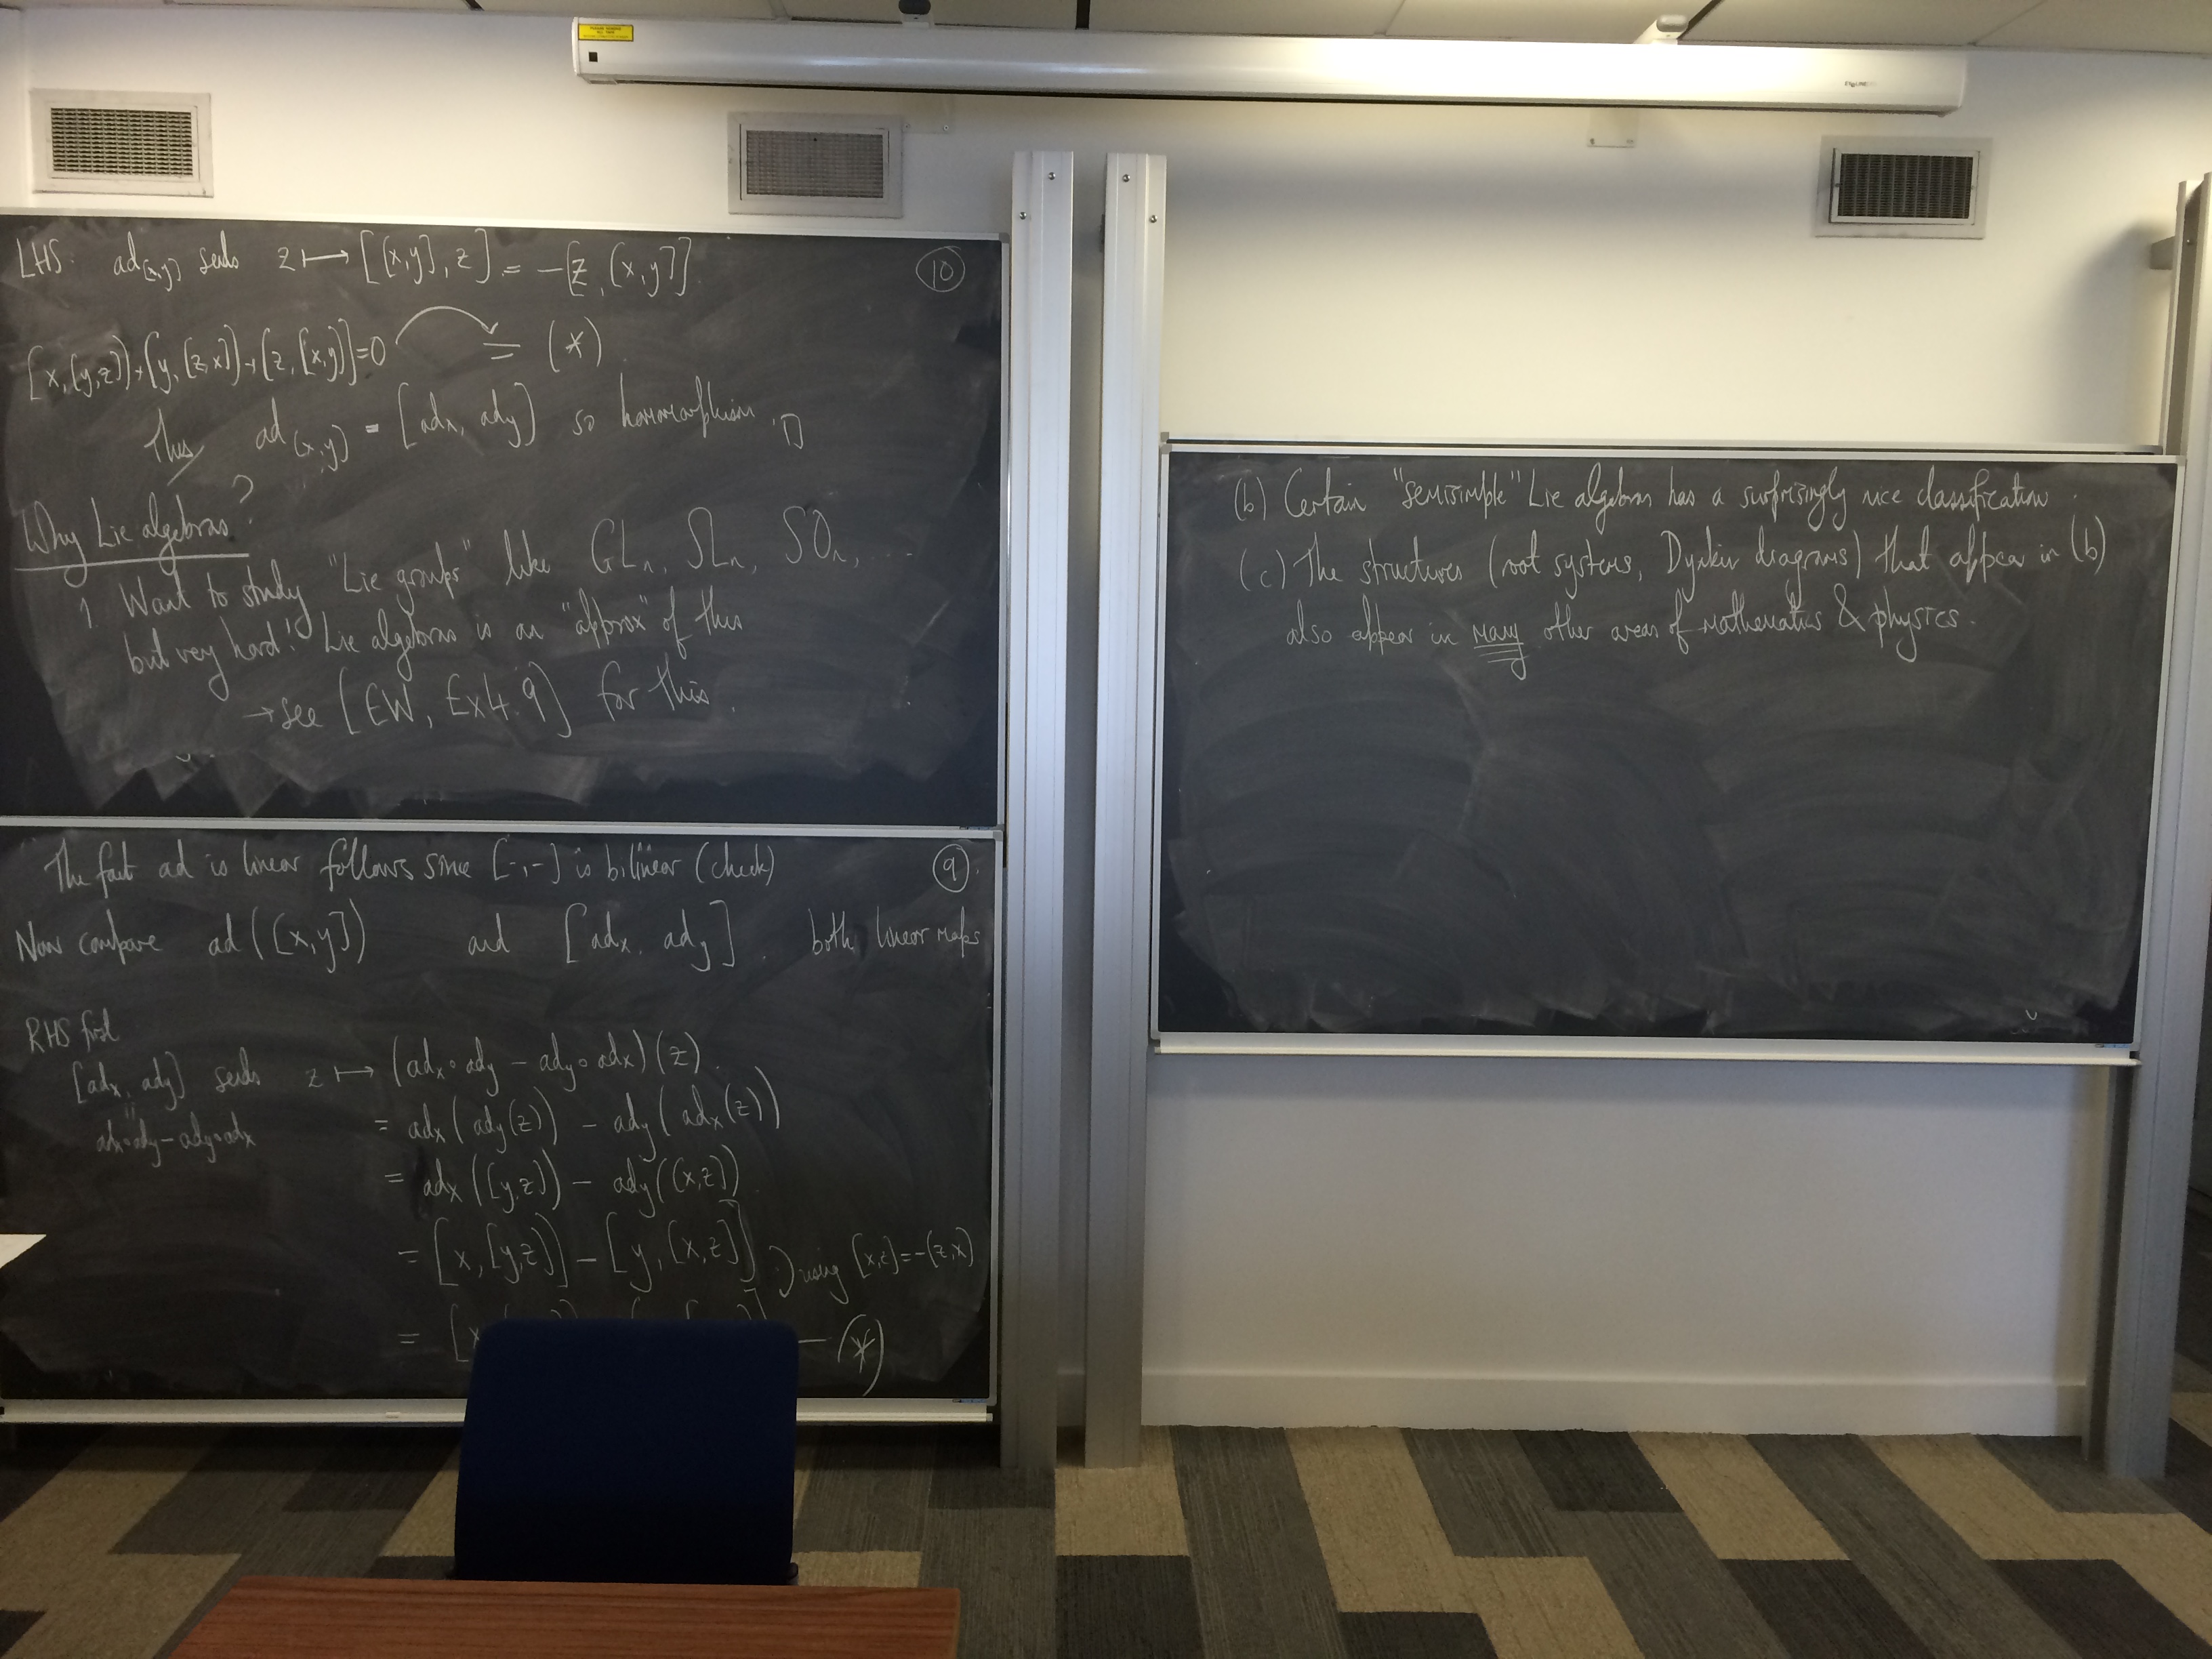 LHS. ad[x,y] sends z ⟼ [[x,y], z] = -[z, [x,y]]
⑩
[x,[y,z]]+[y,[z,x]]+[z,[x,y]]=0 = (*)
Thus ad[x,y] = [adx, ady] so homomorphism. □
Why Lie algebras?
1. Want to study "Lie groups" like GLn, SLn, SOn, ...
but very hard! Lie algebras is an "approx" of this
→ see [EW, Ex4.9] for this.
The fact ad is linear follows since [-,-] is bilinear (check)
⑨
Now compare ad([x,y]) and [adx, ady]. both linear maps
RHS first
[adx, ady] sends z ⟼ (adx∘ady - ady∘adx)(z).
"
adx∘ady - ady∘adx
= adx(ady(z)) - ady(adx(z))
= adx([y,z]) - ady([x,z])
= [x,[y,z]] - [y,[x,z]] ) using [x,z]=-[z,x]
= [x — (*)
(b) Certain "semisimple" Lie algebras has a surprisingly nice classification.
(c) The structures (root systems, Dynkin diagrams) that appear in (b)
also appear in many other areas of mathematics & physics.